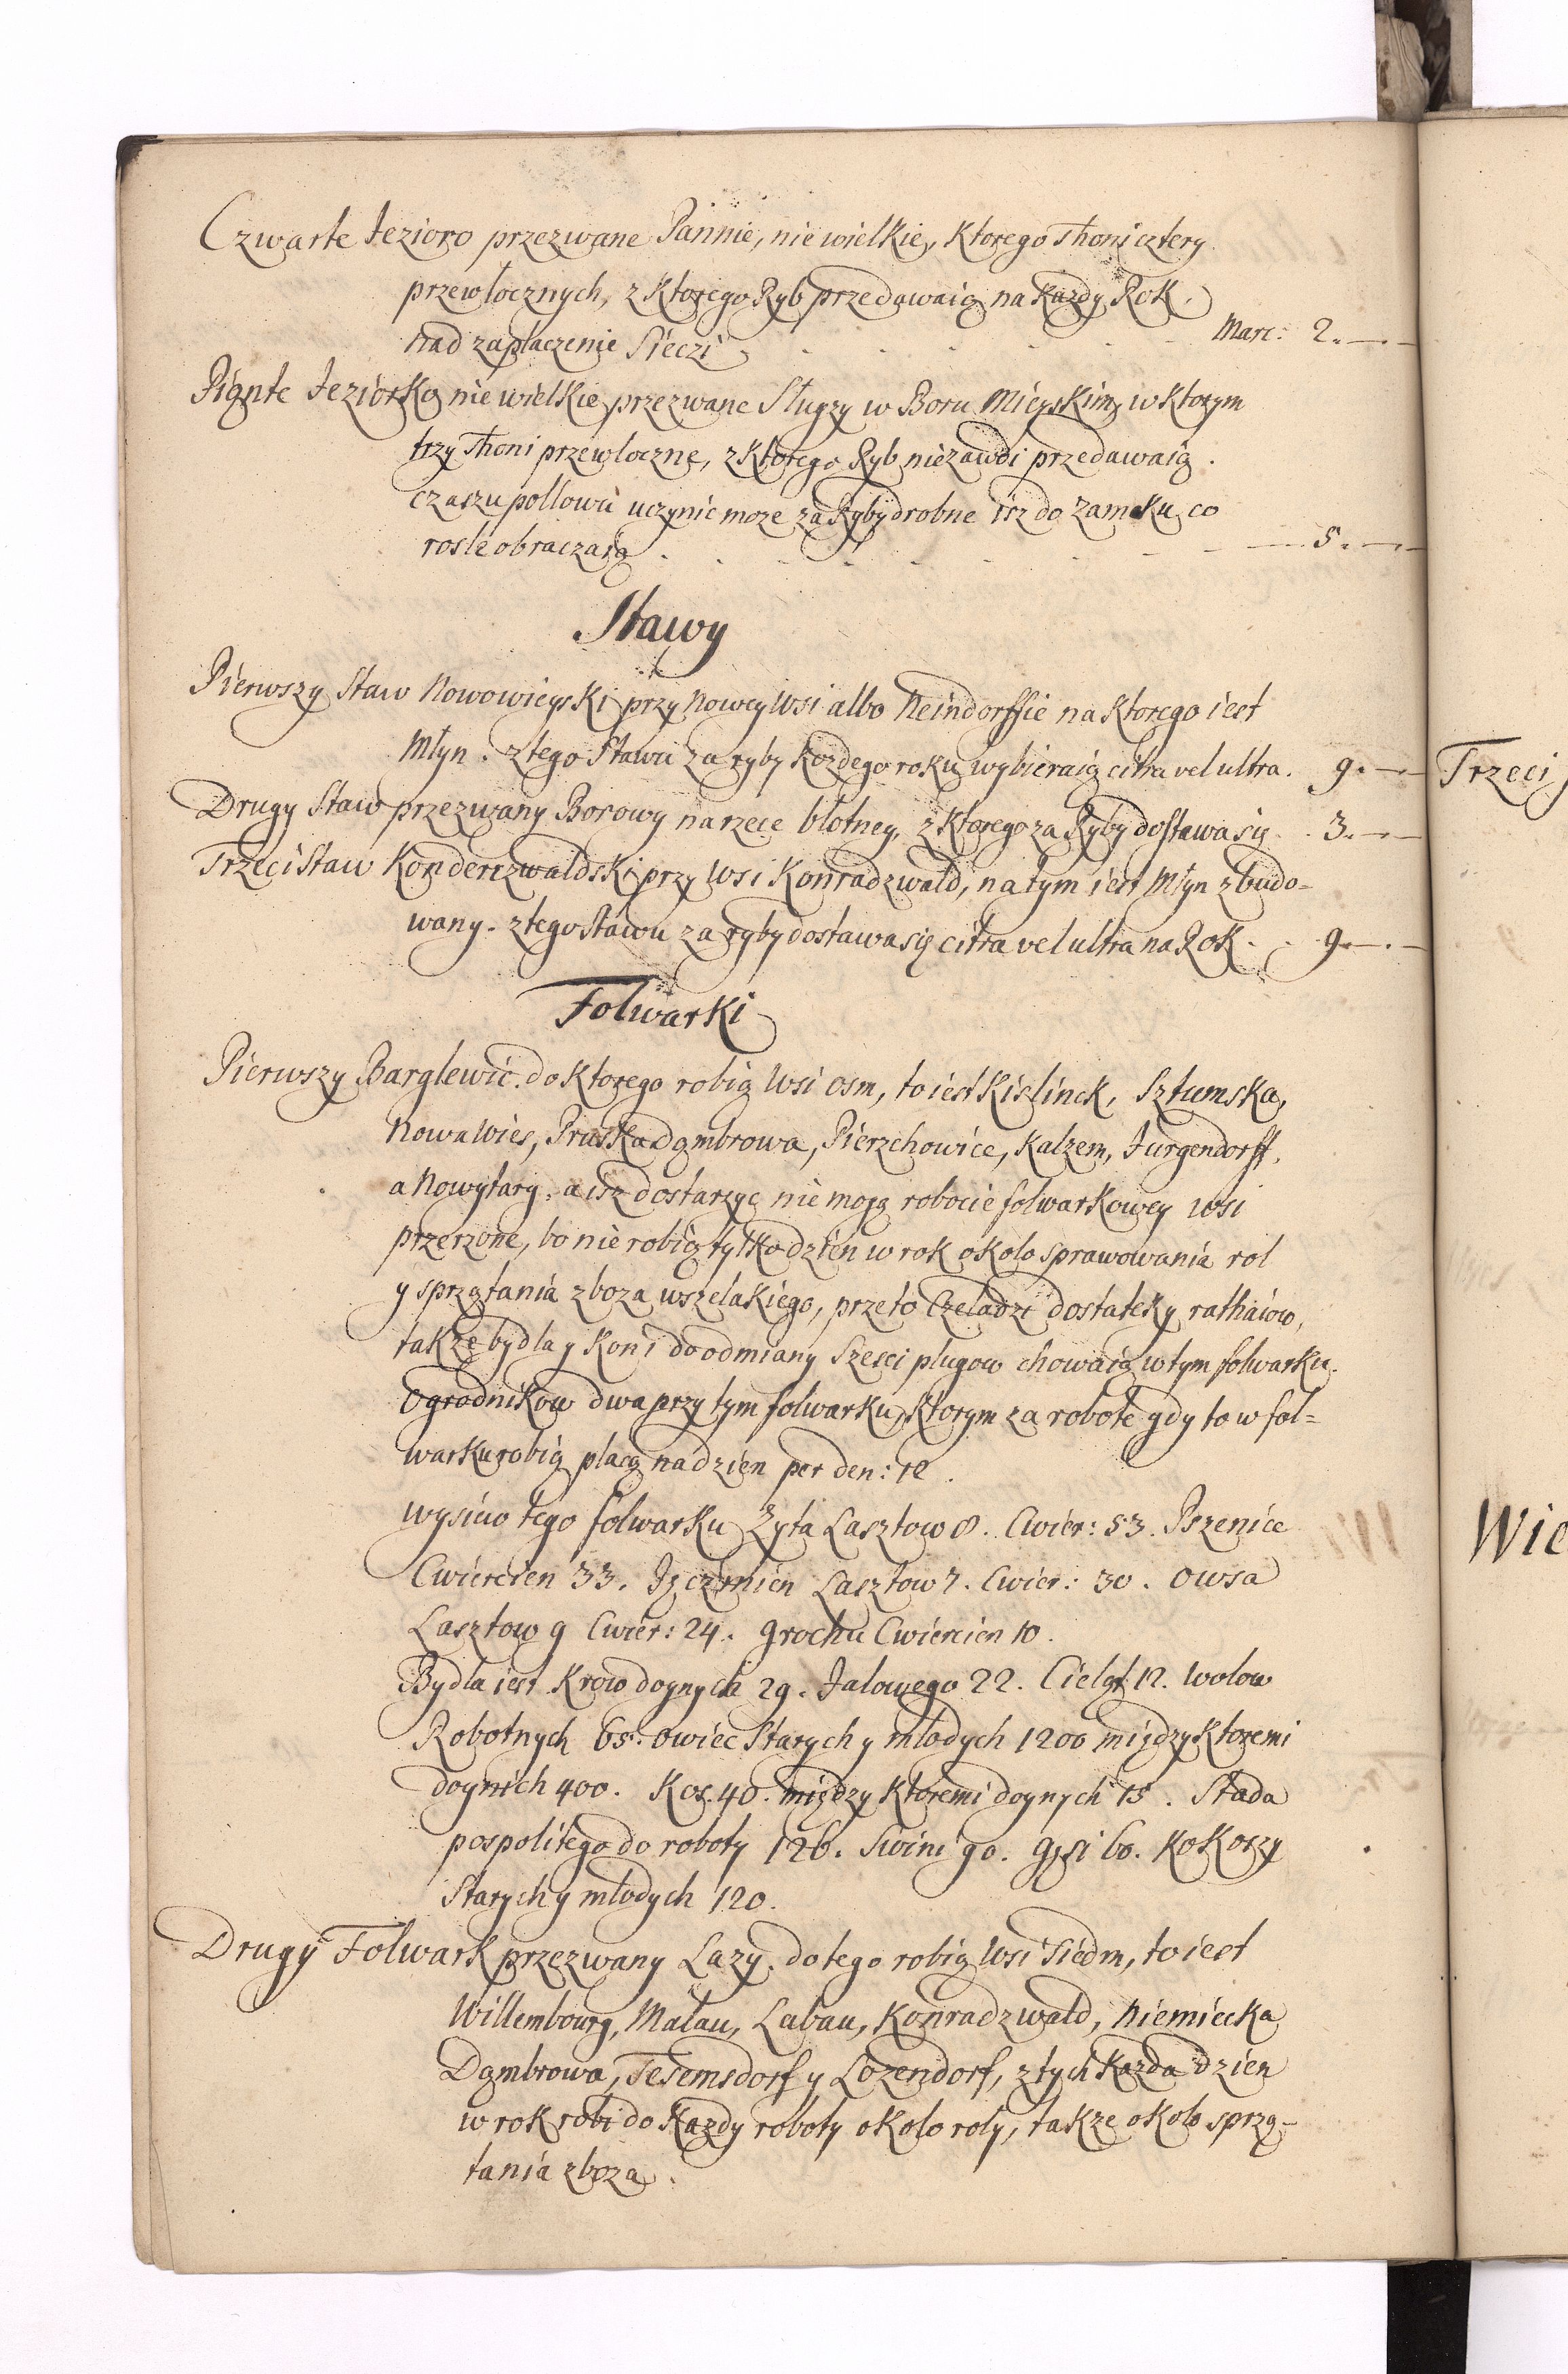 Czwarte Jezioro przezwane Pannie, nie wielkie, ktorego Thoni cztery
przewłocznych, z ktorego Ryb przedawaią na kazdy Rok
nad zapłaczenie Sieczi Marc: 2.
Piąnte Jeziorko nie wielkie przezwane Slupzy w Boru Mieyskim, w ktorym
trzy Thoni przewloczne, z ktorego Ryb niezawdi przedawaią.
czaszu pollowu uczynic moze za Ryby drobne isz do Zamku co
rosle obraczaią 5.
Stawy
Pierwszy Staw Nowowieyski przy Nowey Wsi albo Neindorffie na ktorego iest
Młyn. z tego Stawu za ryby kozdego roku wybieraią citra vel ultra. 9.
Drugy Staw przezwany Borowy na rzece blotney, z ktorego za Ryby dostawa się 3.
Trzeci Staw Konderczwaldski przy Wsi Konradzwald, na tym iest Młyn zbudo-
wany. z tego Stawu za ryby dostawa się citra vel ultra na Rok 9.
Folwarki
Pierwszy Barglewic. do ktorego robią Wsi osm, to iest Kislinck, Sztumska,
Nowa Wies, Pruska Dąmbrowa, Pierzchowice, Kalzem, Jurgendorff,
a Nowytarg, a isz dostarzyc nie mogą robocie folwarkowey Wsi
przerzone, bo nie robią tylko dzien w rok okolo sprawowania rol
y sprzątania zboza wszelakiego, przeto Czeladzi dostateky rathaiow,
takze bydla y koni do odmiany Szesci plugow chowaią w tym folwarku.
Ogrodnikow dwa przy tym folwarku, ktorym za robote gdy to w fol-
warku robią płacą na dzien per den: 12.
wysiew tego folwarku Zyta Lasztow 8. Cwier: 53. Pszenice
Cwiercien 33. Jęczmien Lasztow 7. Cwier: 30. Owsa
Lasztow 9 Cwier: 24. Grochu Cwiercien 10.
Bydla iest Krow doynych 29. Jalowego 22. Cieląt 12. Wolow
Robotnych 65. Owiec Starych y mlodych 1200 między ktoremi
doynich 400. Koz. 40. między ktoremi doynych 15. Stada
pospolitego do roboty 126. Swini 90. Gęsi 60. Kokoszy
Starych y mlodych 120.
Drugy Folwark przezwany Lazy. do tego robią Wsi Siedm, to iest
Willembourg, Matau, Labau, Konradzwald, Niemiecka
Dąmbrowa, Tesemsdorf y Lozendorf, z tych kazda dzien
w rok robi do kazdy roboty okolo roly, takze okolo sprzą-
tania zboza.
Trzeci
Wie